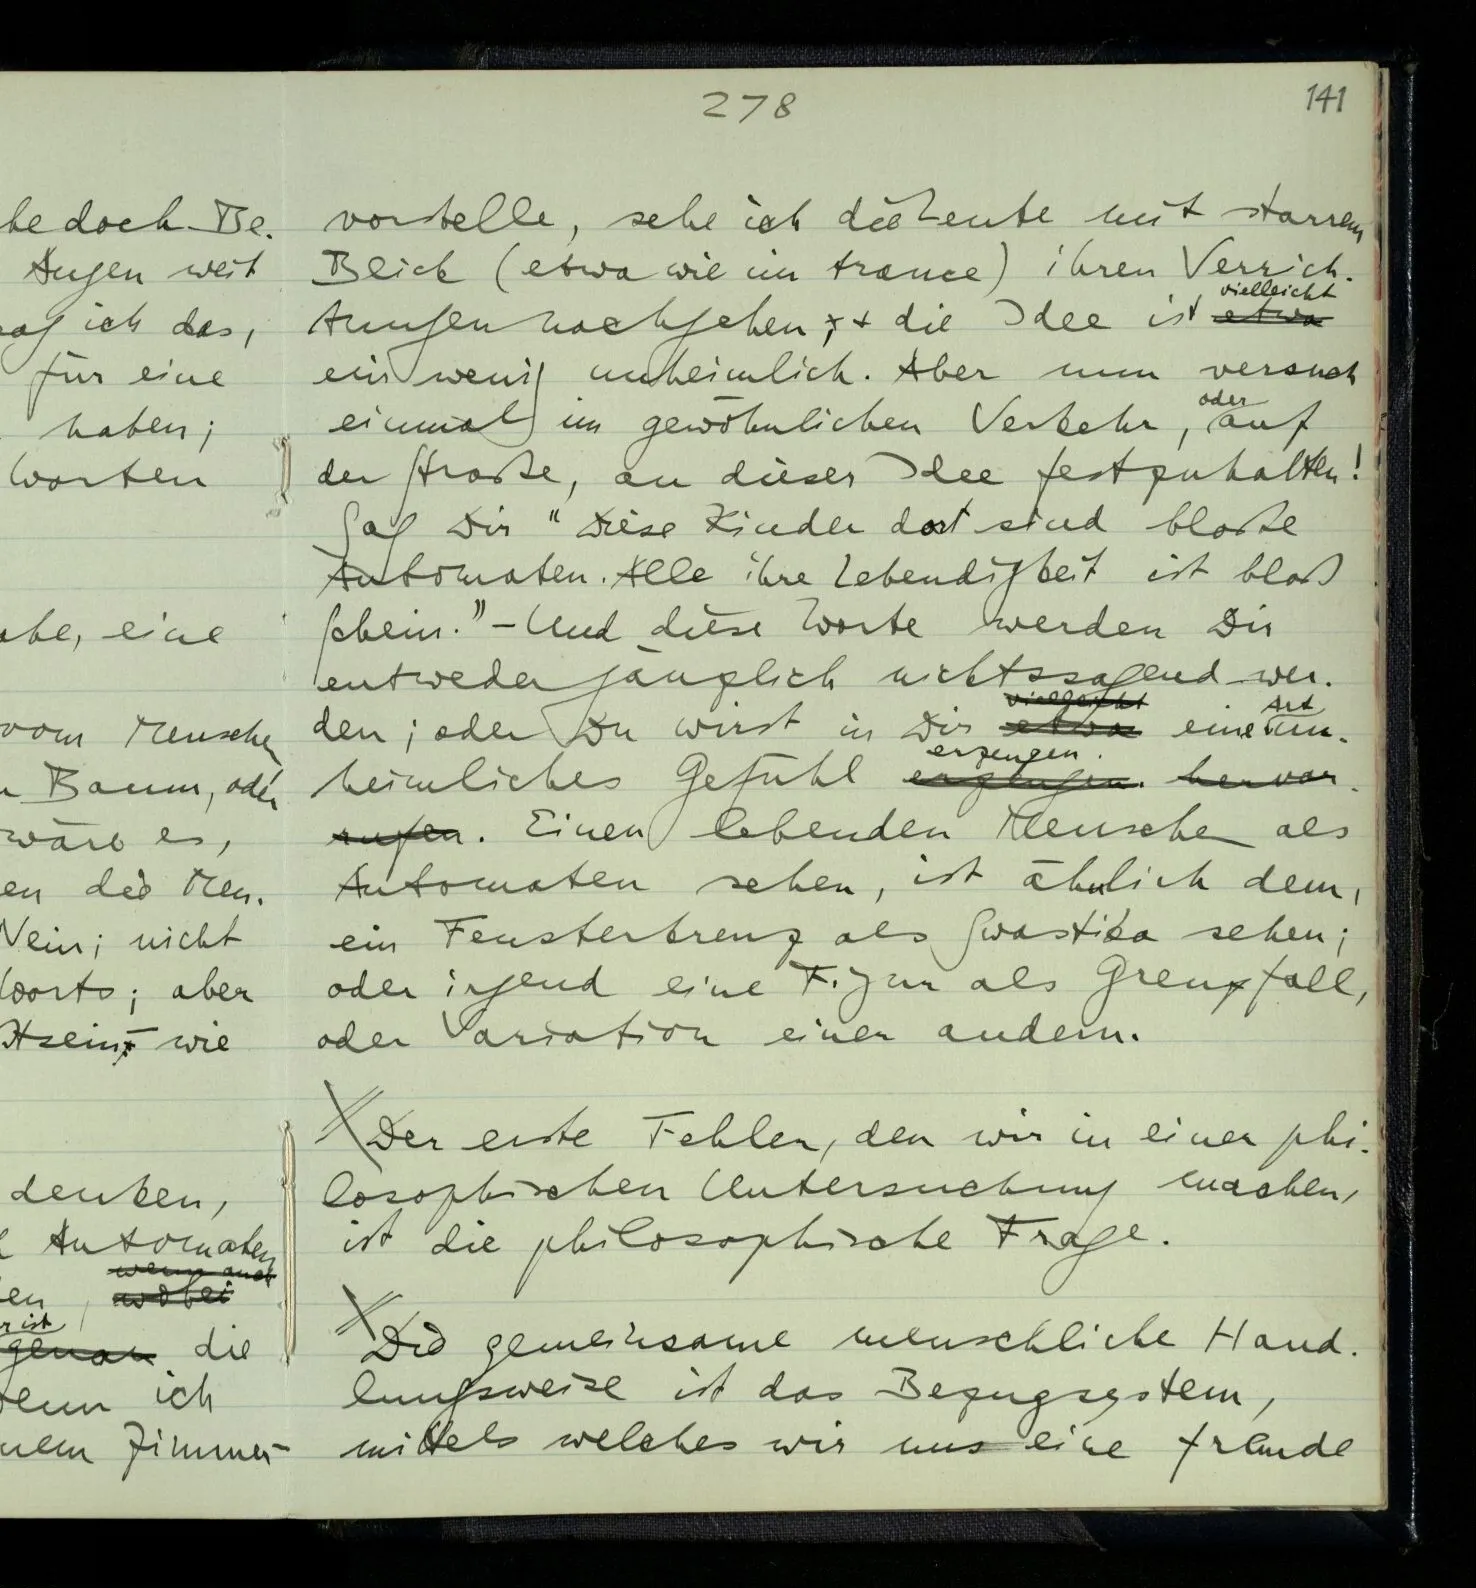 278
141
he doch Be-
Augen weit
sag ich das,
für eine
haben;
Worten
abe, eine
vom Menschen
Baum, oder
wäre es,
en die Men-
Nein; nicht
Worts; aber
tsein – wie
denken,
Automaten
wenn auch
en, wobei
er ist
genau die
wenn ich
nem Zimmer
vorstelle, sehe ich die Leute mit starrem
Blick (etwa wie im trance) ihren Verrich-
vielleicht
tungen nachgehen; + die Idee ist etwa
ein wenig unheimlich. Aber nun versuch
oder
einmal im gewöhnlichen Verkehr, auf
der Straße, an dieser Idee festzuhalten!
Sag Dir "Diese Kinder dort sind bloße
Automaten. Alle ihre Lebendigkeit ist bloß
Schein." – Und diese Worte werden Dir
entweder gänzlich nichtssagend wer-
vielleicht Art
den; oder Du wirst in Dir etwa eine un-
erzeugen.
heimliches Gefühl erzeugen. hervor-
rufen. Einen lebenden Menschen als
Automaten sehen, ist ähnlich dem,
ein Fensterkreuz als Swastika sehen;
oder irgend eine Figur als Grenzfall,
oder Variation einer andern.
Der erste Fehler, den wir in einer phi-
losophischen Untersuchung machen,
ist die philosophische Frage.
Die gemeinsame menschliche Hand-
lungsweise ist das Bezugssystem,
mittels welches wir uns eine fremde